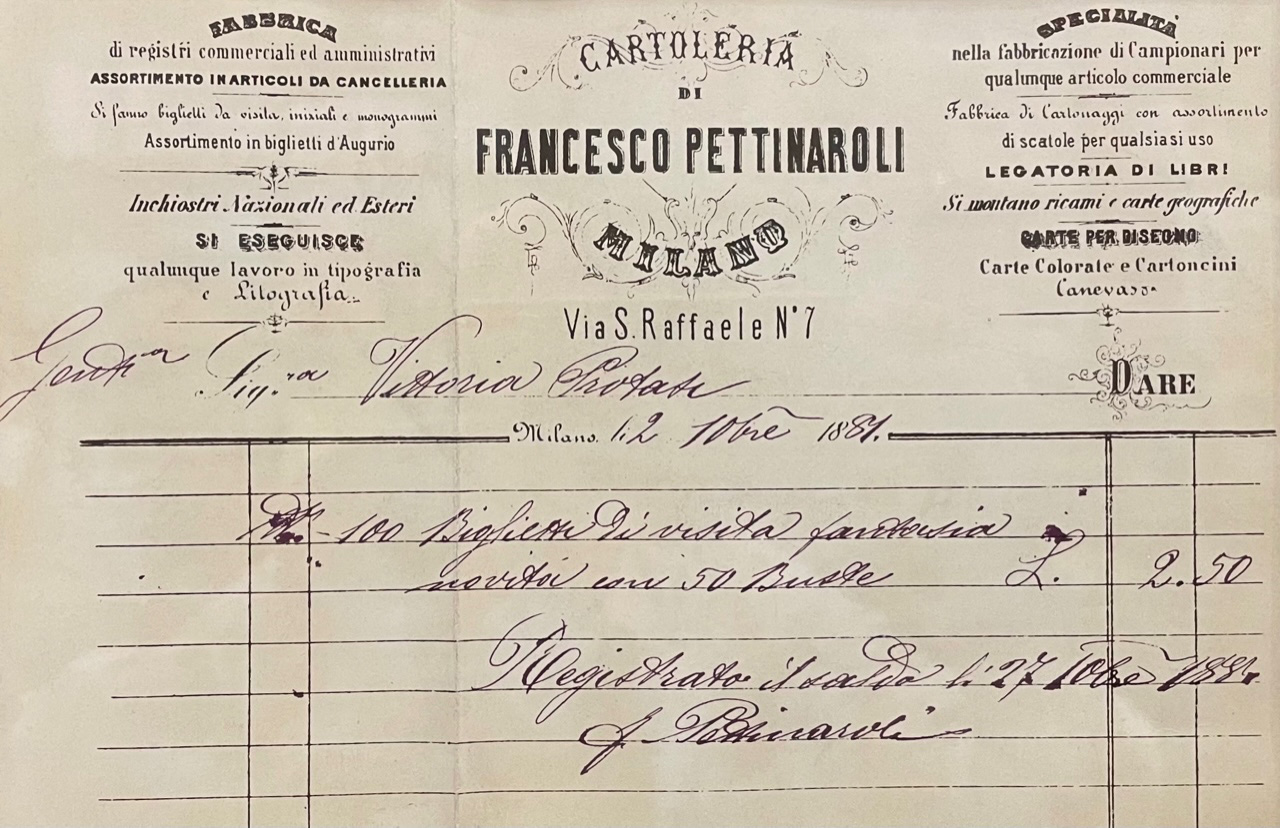 FABBRICA
di registri commerciali ed amministrativi
ASSORTIMENTO IN ARTICOLI DA CANCELLERIA
Si fanno biglietti da visita, iniziali e monogrammi
Assortimento in biglietti d'Augurio
Inchiostri Nazionali ed Esteri
SI ESEGUISCE
qualunque lavoro in tipografia
e Litografia
CARTOLERIA
DI
FRANCESCO PETTINAROLI
MILANO
Via S. Raffaele N° 7
SPECIALITÀ
nella fabbricazione di Campionari per
qualunque articolo commerciale
Fabbrica di Cartonaggi con assortimento
di scatole per qualsiasi uso
LEGATORIA DI LIBRI
Si montano ricami e carte geografiche
CARTE PER DISEGNO
Carte Colorate e Cartoncini
Canevass
Gentma Sig.ra Vittoria
DARE
Milano, li 2 10bre 1881.
100 Biglietti di visita fantasia
novità con 50 Buste L. 2.50
Registrato il saldo li 27 10bre 1881
f. Pettinaroli